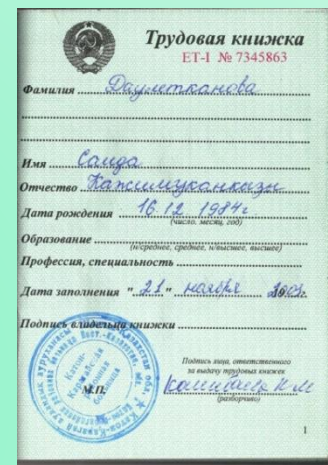 Трудовая книжка
ЕТ-I № 7345863
Фамилия Даулетканова
Имя Саида
Отчество Кажимуканкызы
Дата рождения 16.12.1984г
(число, месяц, год)
Образование
(н/среднее, среднее, н/высшее, высшее)
Профессия, специальность
Дата заполнения "21" ноября
Подпись владельца книжки
Подпись лица, ответственного
за выдачу трудовых книжек
М.П.
(разборчиво)
1